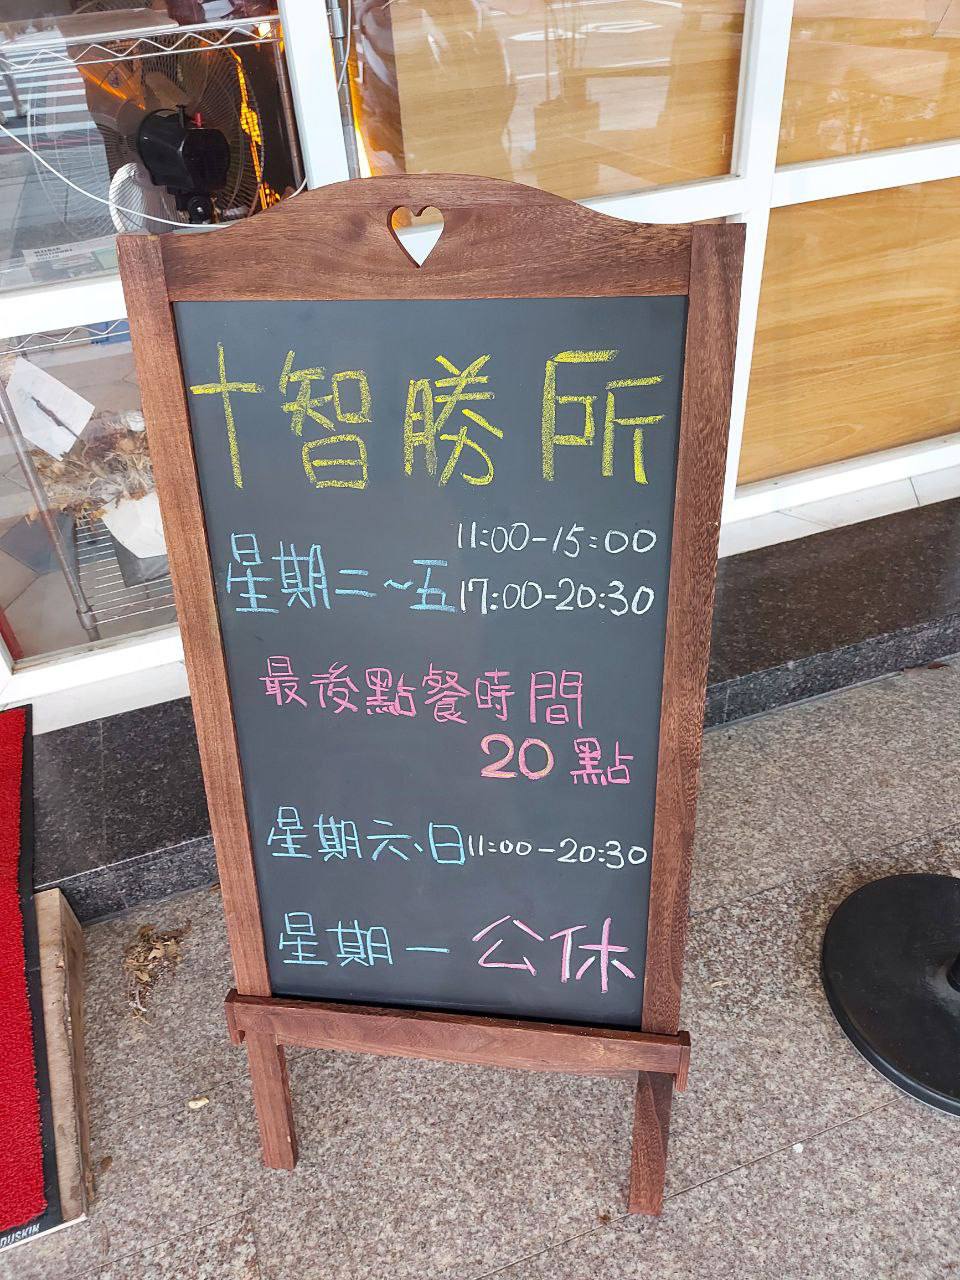 十智勝所
11:00-15:00
星期二~五 17:00-20:30
最後點餐時間
20點
星期六、日 11:00-20:30
星期一 公休
DUSKIN